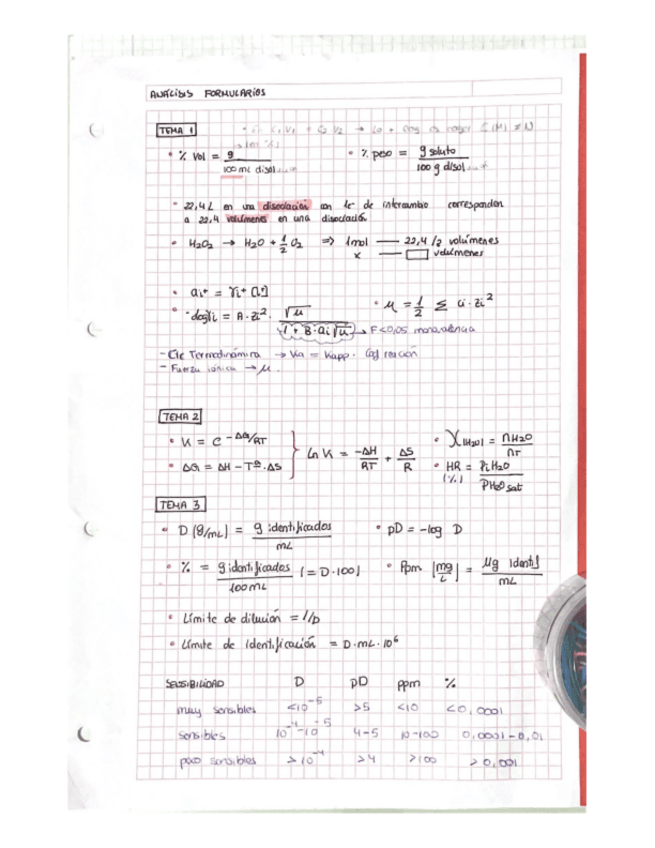 ANÁLISIS FORMULARIOS
TEMA 1
• % Vol = g / 100 mL disol • % peso = g soluto / 100 g disol
• 22,4 L en una disociación con 1e⁻ de intercambio corresponden
a 22,4 volúmenes en una disociación
• H₂O₂ → H₂O + 1/2 O₂ ⇒ 1mol — 22,4/2 volúmenes
x — □ volúmenes
• ai⁺ = γi⁺ [i⁺]
• -logγi = A·Zi² · √μ / 1 + B·ai√μ → F<0,05 monovalencia • μ = 1/2 Σ Ci·Zi²
- Cte Termodinámica → Ka = Kapp · Coef reación
- Fuerza iónica → μ.
TEMA 2
• K = e^-ΔG/RT } ln K = -ΔH/RT + ΔS/R • X(H2O) = nH2O / nT
• ΔG = ΔH - Tª·ΔS • HR (%) = PiH2O / PH2O sat
TEMA 3
• D (g/mL) = g identificados / mL • pD = -log D
• % = g identificados / 100mL (= D·100) • Ppm [mg/L] = μg identif / mL
• Límite de dilución = 1/D
• Límite de identificación = D·mL·10⁶
SENSIBILIDAD D pD ppm %
muy sensibles <10⁻⁵ >5 <10 <0,0001
sensibles 10⁻⁴-10⁻⁵ 4-5 10-100 0,0001-0,01
poco sensibles >10⁻⁴ >4 >100 >0,001